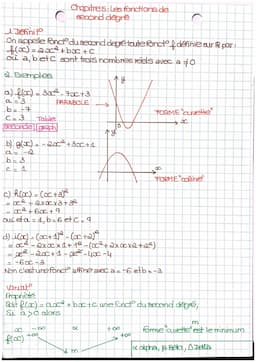 Chapitre 1: Les fonctions de
second degré
1. Définit°
On appelle fonct° du second degré toute fonct° f définie sur R par:
f(x) = ax² + bx + c
où a, b et c sont trois nombres réels avec a ≠ 0
2. Exemples
a) f(x) = 3x² - 7x + 3
a = 3
b = -7
c = 3
PARABOLE
FORME "cuvette"
Table
seconde graph
y
x
b) g(x) = -2x² + 3x + 1
a = -2
b = 3
c = 1
FORME "colline"
c) h(x) = (x+3)²
= x² + 2×x×3 + 3²
= x² + 6x + 9
où a = 1, b = 6 et c = 9
d) i(x) = (x+1)² - (x+2)²
= x² - 2×x×1 + 1² - (x² + 2×x×2 + 2²)
= x² - 2x + 1 - x² - 4x - 4
= -6x - 3
Non c'est une fonct° affine avec a = -6 et b = -3
Variat°
Propriété
Soit f(x) = ax² + bx + c une fonct° du second degré,
Si a > 0 alors
x -∞ α +∞
f(x) +∞ +∞
forme "cuvette" est le minimum
α alpha, β Bêta, Δ Delta